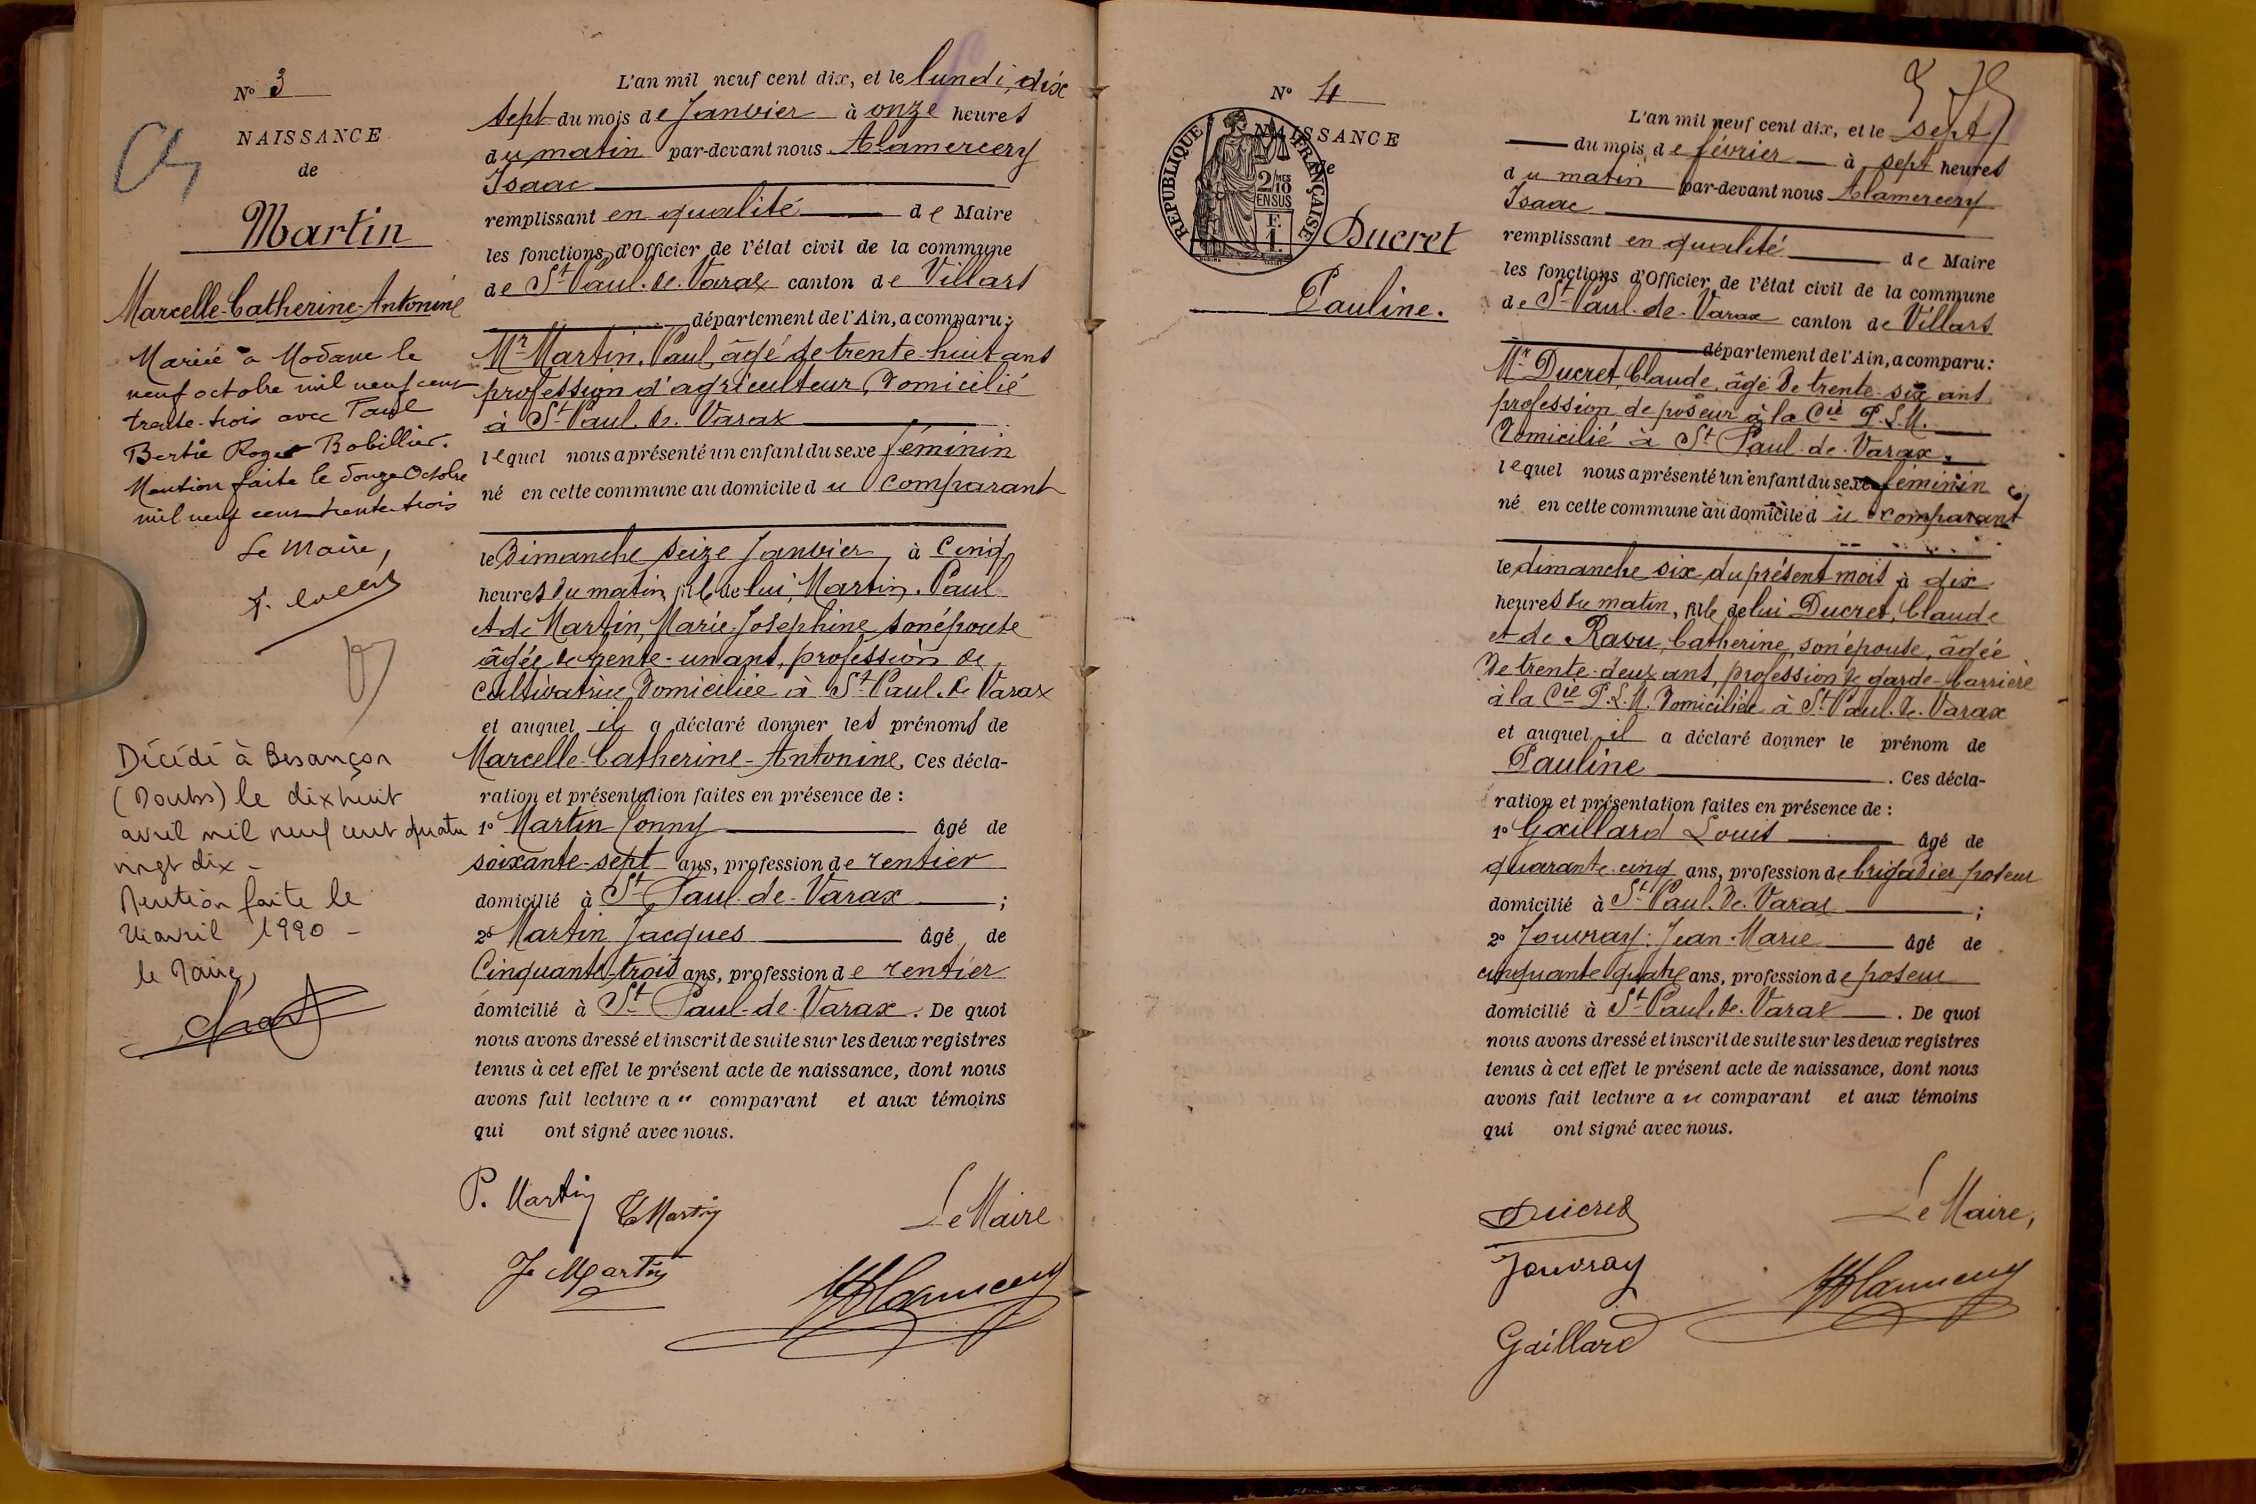 N° 3
NAISSANCE
de
Martin
Marcelle-Catherine-Antonine
Mariée à Modane le
neuf octobre mil neuf cent
trente-trois avec Paul
Bertie Roger Bobillier.
Mention faite le douze Octobre
mil neuf cent trente trois
Le Maire,
Décédé à Besançon
(Doubs) le dix huit
avril mil neuf cent quatre
vingt dix -
Mention faite le
avril 1990 -
le Maire,
L'an mil neuf cent dix, et le lundi, dix
sept du mois de Janvier à onze heures
du matin par-devant nous Alamercery
Isaac
remplissant en qualité de Maire
les fonctions d'Officier de l'état civil de la commune
de St Paul. de. Varax canton de Villars
département de l'Ain, a comparu:
Mr Martin, Paul, âgé de trente-huit ans
profession d'agriculteur, domicilié
à St Paul. de. Varax
lequel nous a présenté un enfant du sexe féminin
né en cette commune au domicile du comparant
le Dimanche seize Janvier à Cinq
heures du matin, fille de lui, Martin, Paul
et de Martin, Marie-Joséphine son épouse
âgée de trente-un ans, profession de
Cultivatrice, domiciliée à St Paul. de Varax
et auquel il a déclaré donner les prénoms de
Marcelle-Catherine-Antonine. Ces décla-
ration et présentation faites en présence de :
1° Martin Jonny âgé de
soixante-sept ans, profession de rentier
domicilié à St Paul-de-Varax ;
2° Martin Jacques âgé de
Cinquante-trois ans, profession de rentier
domicilié à St Paul-de-Varax . De quoi
nous avons dressé et inscrit de suite sur les deux registres
tenus à cet effet le présent acte de naissance, dont nous
avons fait lecture au comparant et aux témoins
qui ont signé avec nous.
P. Martin
Martin
Le Maire
Je Martin
Alamercery
N° 4
NAISSANCE
de
REPUBLIQUE FRANÇAISE
2/10 MES
EN SUS
F.
1.
Ducret
Pauline.
L'an mil neuf cent dix, et le sept
du mois de février à sept heures
du matin par-devant nous Alamercery
Isaac
remplissant en qualité de Maire
les fonctions d'Officier de l'état civil de la commune
de St Paul. de. Varax canton de Villars
département de l'Ain, a comparu:
Mr Ducret, Claude, âgé de trente-six ans
profession de poseur à la Cie P.L.M.
Domicilié à St Paul-de-Varax
lequel nous a présenté un enfant du sexe féminin
né en cette commune au domicile du comparant
le dimanche six du présent mois à dix
heures du matin, fille de lui Ducret, Claude
et de Ravu, Catherine, son épouse, âgée
de trente-deux ans, profession de garde-barrière
à la Cie P.L.M. domiciliée à St Paul. de. Varax
et auquel il a déclaré donner le prénom de
Pauline . Ces décla-
ration et présentation faites en présence de :
1° Gaillard Louis âgé de
quarante-cinq ans, profession de brigadier poseur
domicilié à St Paul. de. Varax ;
2° Jouvray, Jean-Marie âgé de
cinquante quatre ans, profession de poseur
domicilié à St Paul. de. Varax . De quoi
nous avons dressé et inscrit de suite sur les deux registres
tenus à cet effet le présent acte de naissance, dont nous
avons fait lecture au comparant et aux témoins
qui ont signé avec nous.
Ducret
Le Maire,
Jouvray
Alamercery
Gaillard